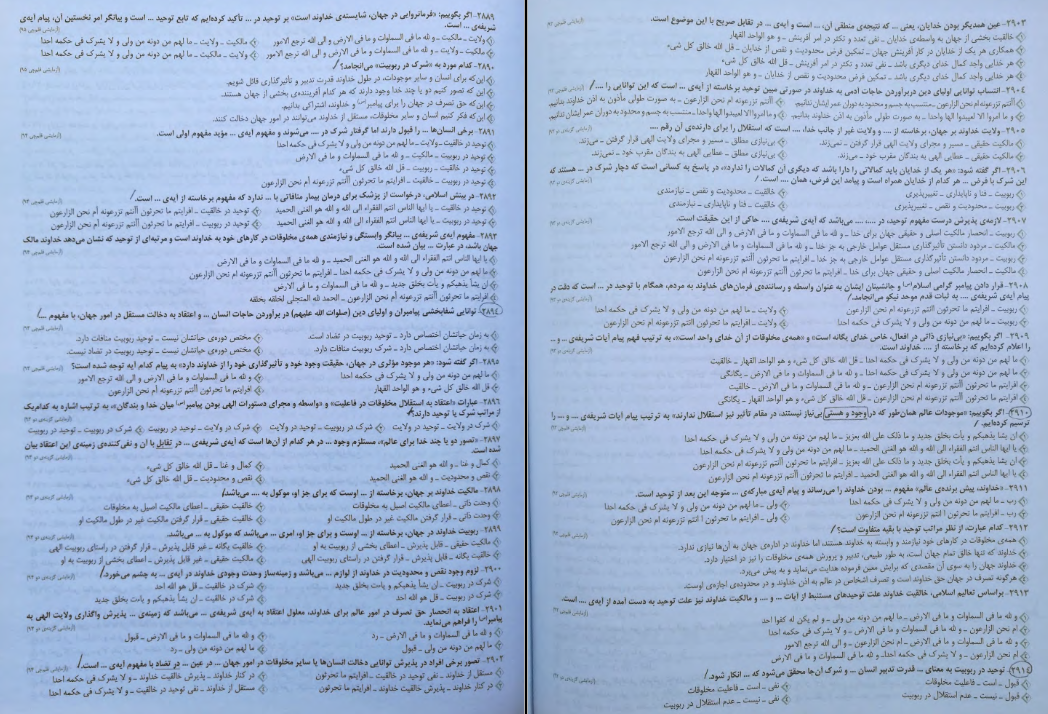 ۲۸۸۹- اگر بگوییم: «فرمانروایی در جهان، شایسته‌ی خداوند است» بر توحید در ... تأکید کرده‌ایم که تابع توحید ... است و بیانگر امر نخستین آن، پیام آیه‌ی
شریفه‌ی ... است.
ولایت ـ مالکیت ـ و لله ما فی السماوات و ما فی الارض و الی الله ترجع الامور
مالکیت ـ ولایت ـ ما لهم من دونه من ولی و لا یشرک فی حکمه احدا
مالکیت ـ ولایت ـ و لله ما فی السماوات و ما فی الارض و الی الله ترجع الامور
ولایت ـ مالکیت ـ ما لهم من دونه من ولی و لا یشرک فی حکمه احدا
۲۸۹۰- کدام مورد به «شرک در ربوبیت» می‌انجامد؟
این‌که برای انسان و سایر موجودات، در طول خداوند قدرت تدبیر و تأثیرگذاری قائل شویم.
این‌که تصور کنیم دو یا چند خدا وجود دارند که هر کدام آفریننده‌ی بخشی از جهان هستند.
این‌که حق تصرف در جهان را برای پیامبر و خداوند، اشتراکی بدانیم.
این‌که فکر کنیم انسان و سایر مخلوقات، مستقل از خداوند می‌توانند در امور جهان دخالت کنند.
۲۸۹۱- برخی انسان‌ها ... را قبول دارند اما گرفتار شرک در ... می‌شوند و مفهوم آیه‌ی ... مؤید مفهوم اولی است.
توحید در خالقیت ـ ولایت ـ ما لهم من دونه من ولی و لا یشرک فی حکمه احدا
توحید در ربوبیت ـ مالکیت ـ و لله ما فی السماوات و ما فی الارض
توحید در خالقیت ـ ربوبیت ـ قل الله خالق کل شیء
توحید در ربوبیت ـ خالقیت ـ افرایتم ما تحرثون أأنتم تزرعونه أم نحن الزارعون
۲۸۹۲- در بینش اسلامی، درخواست از پزشک برای درمان بیمار منافاتی با ... ندارد که مفهوم برخاسته از آیه‌ی ... است.
توحید در خالقیت ـ یا ایها الناس انتم الفقراء الی الله و الله هو الغنی الحمید
توحید در خالقیت ـ افرایتم ما تحرثون أأنتم تزرعونه أم نحن الزارعون
توحید در ربوبیت ـ یا ایها الناس انتم الفقراء الی الله و الله هو الغنی الحمید
توحید در ربوبیت ـ افرایتم ما تحرثون أأنتم تزرعونه أم نحن الزارعون
۲۸۹۳- مفهوم آیه‌ی شریفه‌ی ... بیانگر وابستگی و نیازمندی همه‌ی مخلوقات در کارهای خود به خداوند است و مرتبه‌ای از توحید که نشان می‌دهد خداوند مالک
جهان باشد، در عبارت ... بیان شده است.
یا ایها الناس انتم الفقراء الی الله و الله هو الغنی الحمید ـ و لله ما فی السماوات و ما فی الارض
ما لهم من دونه من ولی و لا یشرک فی حکمه احدا ـ افرایتم ما تحرثون أأنتم تزرعونه أم نحن الزارعون
ان یشأ یذهبکم و یأت بخلق جدید ـ و لله ما فی السماوات و ما فی الارض
افرایتم ما تحرثون أأنتم تزرعونه أم نحن الزارعون ـ الحمد لله المتجلی لخلقه بخلقه
۲۸۹۴- توانایی شفابخشی پیامبران و اولیای دین (صلوات الله علیهم) در برآوردن حاجات انسان ... و اعتقاد به دخالت مستقل در امور جهان، با مفهوم ...
به زمان حیاتشان اختصاص دارد ـ توحید ربوبیت در تضاد است.
مختص دوره‌ی حیاتشان نیست ـ توحید ربوبیت منافات دارد.
به زمان حیاتشان اختصاص دارد ـ شرک ربوبیت منافات دارد.
مختص دوره‌ی حیاتشان نیست ـ توحید ربوبیت در تضاد نیست.
۲۸۹۵- اگر گفته شود: «هر موجود مؤثری در جهان، حقیقت وجود خود و تأثیرگذاری خود را از خداوند دارد» به پیام کدام آیه توجه شده است؟
ما لهم من دونه من ولی و لا یشرک فی حکمه احدا
و لله ما فی السماوات و ما فی الارض و الی الله ترجع الامور
قل الله خالق کل شیء و هو الواحد القهار
افرایتم ما تحرثون أأنتم تزرعونه أم نحن الزارعون
۲۸۹۶- عبارات «اعتقاد به استقلال مخلوقات در فاعلیت» و «واسطه و مجرای دستورات الهی بودن پیامبر میان خدا و بندگان»، به ترتیب اشاره به کدام‌یک
از مراتب شرک یا توحید دارند؟
شرک در ولایت ـ توحید در ولایت
شرک در ربوبیت ـ توحید در ولایت
شرک در ولایت ـ توحید در ربوبیت
شرک در ربوبیت ـ توحید در ربوبیت
۲۸۹۷- «تصور دو یا چند خدا برای عالم»، مستلزم وجود ... در هر کدام از آن‌ها است که آیه‌ی شریفه‌ی ... در تقابل با آن و نفی‌کننده‌ی زمینه‌ی این اعتقاد بیان
شده است.
کمال و غنا ـ و الله هو الغنی الحمید
کمال و غنا ـ قل الله خالق کل شیء
نقص و محدودیت ـ و الله هو الغنی الحمید
نقص و محدودیت ـ قل الله خالق کل شیء
۲۸۹۸- مالکیت خداوند بر جهان، برخاسته از ... اوست که برای جز او، موکول به ... می‌باشد.
وحدت ذاتی ـ اعطای مالکیت اصیل به مخلوقات
خالقیت حقیقی ـ اعطای مالکیت اصیل به مخلوقات
وحدت ذاتی ـ قرار گرفتن مالکیت غیر در طول مالکیت او
خالقیت حقیقی ـ قرار گرفتن مالکیت غیر در طول مالکیت او
۲۸۹۹- ربوبیت خداوند در جهان، برخاسته از ... اوست و برای جز او، امری ... می‌باشد که موکول به ... می‌باشد.
مالکیت حقیقی ـ قابل پذیرش ـ اعطای بخشی از ربوبیت به او
خالقیت یگانه ـ غیر قابل پذیرش ـ قرار گرفتن در راستای ربوبیت الهی
خالقیت یگانه ـ قابل پذیرش ـ قرار گرفتن در راستای ربوبیت الهی
مالکیت حقیقی ـ غیر قابل پذیرش ـ اعطای بخشی از ربوبیت به او
۲۹۰۰- لزوم وجود نقص و محدودیت در خداوند از لوازم ... می‌باشد و زمینه‌ساز وحدت وجودی خداوند در آیه‌ی ... به چشم می‌خورد.
شرک در ربوبیت ـ ان یشأ یذهبکم و یأت بخلق جدید
شرک در خالقیت ـ قل هو الله احد
شرک در ربوبیت ـ قل هو الله احد
شرک در خالقیت ـ ان یشأ یذهبکم و یأت بخلق جدید
۲۹۰۱- اعتقاد به انحصار حق تصرف در امور عالم برای خداوند، معلول اعتقاد به آیه‌ی شریفه‌ی ... می‌باشد که زمینه‌ی ... پذیرش واگذاری ولایت الهی به
پیامبر را فراهم می‌نماید.
و لله ما فی السماوات و ما فی الارض ـ رد
و لله ما فی السماوات و ما فی الارض ـ قبول
ما لهم من دونه من ولی ـ قبول
ما لهم من دونه من ولی ـ رد
۲۹۰۲- تصور برخی افراد در پذیرش توانایی دخالت انسان‌ها یا سایر مخلوقات در امور جهان ... در عین ... در تضاد با مفهوم آیه‌ی ... است.
مستقل از خداوند ـ نفی توحید در خالقیت ـ افرایتم تحرثون
در کنار خداوند ـ پذیرش خالقیت خداوند ـ و لا یشرک فی حکمه احدا
در کنار خداوند ـ پذیرش خالقیت خداوند ـ افرایتم ما تحرثون
مستقل از خداوند ـ نفی توحید در خالقیت ـ و لا یشرک فی حکمه احدا
۲۹۰۳- عین همدیگر بودن خدایان، یعنی ... که نتیجه‌ی منطقی آن، ... است و آیه‌ی ... در تقابل صریح با این موضوع است.
خالقیت بخشی از جهان به واسطه‌ی خدایان ـ نفی تعدد و تکثر در امر آفرینش ـ و هو الواحد القهار
همکاری هر یک از خدایان در کار آفرینش جهان ـ تمکین فرض محدودیت و نقص از خدایان ـ قل الله خالق کل شیء
هر خدایی واجد کمال خدای دیگری باشد ـ نفی تعدد و تکثر در امر آفرینش ـ قل الله خالق کل شیء
هر خدایی واجد کمال خدای دیگری باشد ـ تمکین فرض محدودیت و نقص از خدایان ـ و هو الواحد القهار
۲۹۰۴- انتساب توانایی اولیای دین در برآوردن حاجات آدمی به خداوند در صورتی مبین توحید برخاسته از آیه‌ی ... است که این توانایی را ...
أأنتم تزرعونه ام نحن الزارعون ـ منتسب به جسم و محدود به دوران عمر ایشان ندانیم.
أأنتم تزرعونه ام نحن الزارعون ـ به صورت طولی مأذون به اذن خداوند بدانیم.
و ما امروا الا لیعبدوا الها واحدا ـ به صورت طولی مأذون به اذن خداوند بدانیم.
و ما امروا الا لیعبدوا الها واحدا ـ منتسب به جسم و محدود به دوران عمر ایشان ندانیم.
۲۹۰۵- ولایت خداوند بر جهان، برخاسته از ... و ولایت غیر از جانب خدا، ... است که استقلال را برای دارنده‌ی آن رقم ...
مالکیت حقیقی ـ مسیر و مجرای ولایت الهی قرار گرفتن ـ نمی‌زند.
بی‌نیازی مطلق ـ مسیر و مجرای ولایت الهی قرار گرفتن ـ می‌زند.
مالکیت حقیقی ـ عطایی الهی به بندگان مقرب خود ـ می‌زند.
بی‌نیازی مطلق ـ عطایی الهی به بندگان مقرب خود ـ نمی‌زند.
۲۹۰۶- اگر گفته شود: «هر یک از خدایان باید کمالاتی را دارا باشد که دیگری آن کمالات را ندارد»، در پاسخ به کسانی است که دچار شرک در ... هستند که
این شرک با فرض ... هر کدام از خدایان همراه است و پیامد این فرض، همان ... است.
ربوبیت ـ فنا و ناپایداری ـ تغییرپذیری
خالقیت ـ محدودیت و نقص ـ نیازمندی
ربوبیت ـ محدودیت و نقص ـ تغییرپذیری
خالقیت ـ فنا و ناپایداری ـ نیازمندی
۲۹۰۷- لازمه‌ی پذیرش درست مفهوم توحید، در ... می‌باشد که آیه‌ی شریفه‌ی ... حاکی از این حقیقت است.
ربوبیت ـ انحصار مالکیت اصلی و حقیقی جهان برای خدا ـ و لله ما فی السماوات و ما فی الارض و الی الله ترجع الامور
مالکیت ـ مردود دانستن تأثیرگذاری مستقل عوامل خارجی به جز خدا ـ و لله ما فی السماوات و ما فی الارض و الی الله ترجع الامور
ربوبیت ـ مردود دانستن تأثیرگذاری مستقل عوامل خارجی به جز خدا ـ افرایتم ما تحرثون أأنتم تزرعونه أم نحن الزارعون
مالکیت ـ انحصار مالکیت اصلی و حقیقی جهان برای خدا ـ افرایتم ما تحرثون أأنتم تزرعونه أم نحن الزارعون
۲۹۰۸- قرار دادن پیامبر گرامی اسلام و جانشینان ایشان به عنوان واسطه و رساننده‌ی فرمان‌های خداوند به مردم، همگام با توحید در ... است که دقت در
پیام آیه‌ی شریفه‌ی ... به ثبات قدم موحد نیکو می‌انجامد.
ربوبیت ـ افرایتم ما تحرثون أأنتم تزرعونه ام نحن الزارعون
ولایت ـ ما لهم من دونه من ولی و لا یشرک فی حکمه احدا
ربوبیت ـ ما لهم من دونه من ولی و لا یشرک فی حکمه احدا
ولایت ـ افرایتم ما تحرثون أأنتم تزرعونه ام نحن الزارعون
۲۹۰۹- اگر بگوییم: «بی‌نیازی ذاتی در افعال، خاص خدای یگانه است» و «همه‌ی مخلوقات از آن خدای واحد است»، به ترتیب فهم پیام آیات شریفه‌ی ... و ...
را اعلام کرده‌ایم که برخاسته از ... خداوند است.
ما لهم من دونه من ولی و لا یشرک فی حکمه احدا ـ قل الله خالق کل شیء و هو الواحد القهار ـ خالقیت
ما لهم من دونه من ولی و لا یشرک فی حکمه احدا ـ و لله ما فی السماوات و ما فی الارض ـ یگانگی
افرایتم ما تحرثون أأنتم تزرعونه أم نحن الزارعون ـ و لله ما فی السماوات و ما فی الارض ـ خالقیت
افرایتم ما تحرثون أأنتم تزرعونه أم نحن الزارعون ـ قل الله خالق کل شیء و هو الواحد القهار ـ یگانگی
۲۹۱۰- اگر بگوییم: «موجودات عالم همان‌طور که در وجود و هستی بی‌نیاز نیستند، در مقام تأثیر نیز استقلال ندارند» به ترتیب پیام آیات شریفه‌ی ... و ... را
ترسیم کرده‌ایم.
ان یشأ یذهبکم و یأت بخلق جدید و ما ذلک علی الله بعزیز ـ ما لهم من دونه من ولی و لا یشرک فی حکمه احدا
یا ایها الناس انتم الفقراء الی الله و الله هو الغنی الحمید ـ ما لهم من دونه من ولی و لا یشرک فی حکمه احدا
ان یشأ یذهبکم و یأت بخلق جدید و ما ذلک علی الله بعزیز ـ افرایتم ما تحرثون أأنتم تزرعونه أم نحن الزارعون
یا ایها الناس انتم الفقراء الی الله و الله هو الغنی الحمید ـ افرایتم ما تحرثون أأنتم تزرعونه أم نحن الزارعون
۲۹۱۱- «خداوند، پیش برنده‌ی عالم» مفهوم ... بودن خداوند را می‌رساند و پیام آیه‌ی مبارکه‌ی ... متوجه این بعد از توحید است.
رب ـ ما لهم من دونه من ولی و لا یشرک فی حکمه احدا
ولی ـ ما لهم من دونه من ولی و لا یشرک فی حکمه احدا
رب ـ افرایتم ما تحرثون أأنتم تزرعونه أم نحن الزارعون
ولی ـ افرایتم ما تحرثون أأنتم تزرعونه أم نحن الزارعون
۲۹۱۲- کدام عبارت، از نظر مراتب توحید با بقیه متفاوت است؟
همه‌ی مخلوقات در کارهای خود نیازمند و وابسته به خداوند هستند، اما خداوند در اداره‌ی جهان به آن‌ها نیازی ندارد.
خداوند که تنها خالق تمام جهان است، به طور طبیعی، تدبیر و پرورش همه‌ی مخلوقات را نیز در اختیار دارد.
خداوند جهان را به سوی آن مقصدی که برایش معین فرموده هدایت می‌نماید و به پیش می‌برد.
هرگونه تصرف در جهان حق خداوند است و تصرف اشخاص در عالم به اذن خداوند و در محدوده‌ی اجازه‌ی اوست.
۲۹۱۳- براساس تعالیم اسلامی، خالقیت خداوند علت توحیدهای مستنبط از آیات ... و ... و مالکیت خداوند نیز علت توحید به دست آمده از آیه‌ی ... است.
و لله ما فی السماوات و ما فی الارض ـ ما لهم من دونه من ولی ـ و لم یکن له کفوا احد
ام نحن الزارعون ـ و لله ما فی السماوات و ما فی الارض ـ و لا یشرک فی حکمه احدا
ما لهم من دونه من ولی ـ ام نحن الزارعون ـ و الی الله ترجع الامور
ام نحن الزارعون ـ و لا یشرک فی حکمه احدا ـ و لله ما فی السماوات و ما فی الارض
۲۹۱۴- توحید در ربوبیت به معنای ... قدرت تدبیر انسان ... و شرک آن‌جا محقق می‌شود که ... انکار شود.
قبول ـ است ـ فاعلیت مخلوقات
نفی ـ است ـ فاعلیت مخلوقات
قبول ـ نیست ـ عدم استقلال در ربوبیت
نفی ـ نیست ـ عدم استقلال در ربوبیت